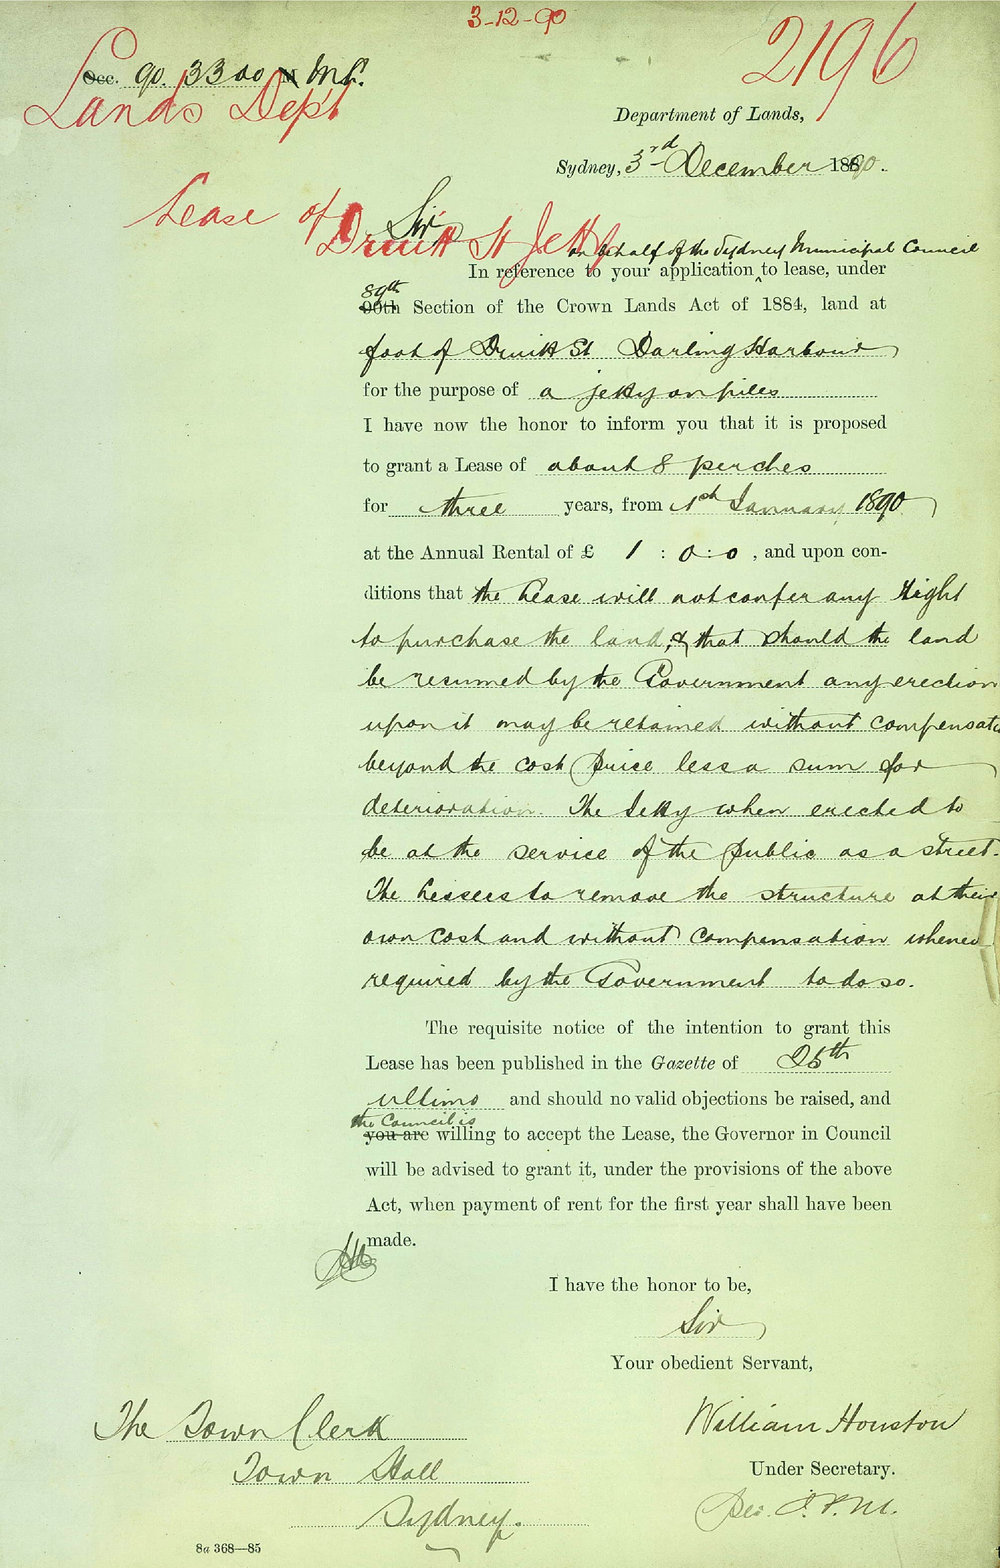 3-12-90
2196
Occ. 90. 3300 M M.L.
Lands Dept
Department of Lands,
Sydney, 3rd December 1890.
Lease of
Druitt St Jetty
Sir
on behalf of the Sydney Municipal Council
In reference to your application to lease, under
89th
90th Section of the Crown Lands Act of 1884, land at
foot of Druitt St Darling Harbour
for the purpose of a jetty on piles
I have now the honor to inform you that it is proposed
to grant a Lease of about 8 perches
for three years, from 1st January 1890
at the Annual Rental of £ 1 : 0 : 0 , and upon con-
ditions that the Lease will not confer any right
to purchase the land, & that should the land
be resumed by the Government any erection
upon it may be retained without compensatio
beyond the cost price less a sum for
deterioration. The Jetty when erected to
be at the service of the public as a street.
The Lessees to remove the structure at their
own cost and without compensation whenev
required by the Government to do so.
The requisite notice of the intention to grant this
Lease has been published in the Gazette of 26th
ultimo and should no valid objections be raised, and
the Council is
you are willing to accept the Lease, the Governor in Council
will be advised to grant it, under the provisions of the above
Act, when payment of rent for the first year shall have been
made.
I have the honor to be,
Sir
Your obedient Servant,
William Houston
Under Secretary.
The Town Clerk
Town Hall
Sydney.
8a 368—85